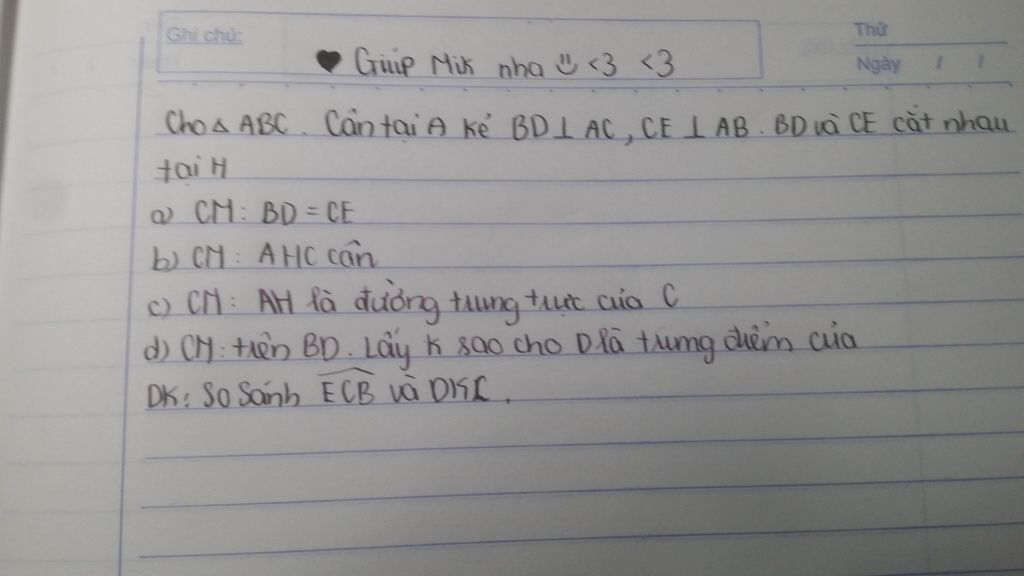 Ghi chú:
Thứ
♥ Giúp Mik nha <3 <3
Ngày / /
Cho Δ ABC. Cân tại A kẻ BD ⊥ AC, CE ⊥ AB. BD và CE cắt nhau
tại H
a) CM: BD = CE
b) CM: AHC cân
c) CM: AH là đường trung trực của C
d) CM: trên BD. Lấy K sao cho D là trung điểm của
DK: So Sánh ECB và DKC.